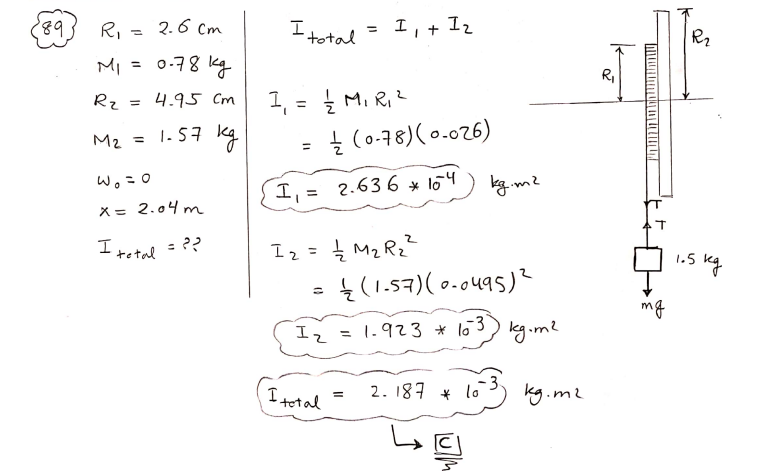 89
R1 = 2.6 cm
M1 = 0.78 kg
R2 = 4.95 cm
M2 = 1.57 kg
ω0 = 0
x = 2.04 m
I total = ??
I total = I1 + I2
I1 = 1/2 M1 R1²
= 1/2 (0.78)(0.026)
I1 = 2.636 * 10⁻⁴ kg.m2
I2 = 1/2 M2 R2²
= 1/2 (1.57)(0.0495)²
I2 = 1.923 * 10⁻³ kg.m2
I total = 2.187 * 10⁻³ kg.m2
C
R1
R2
T
T
1.5 kg
mg